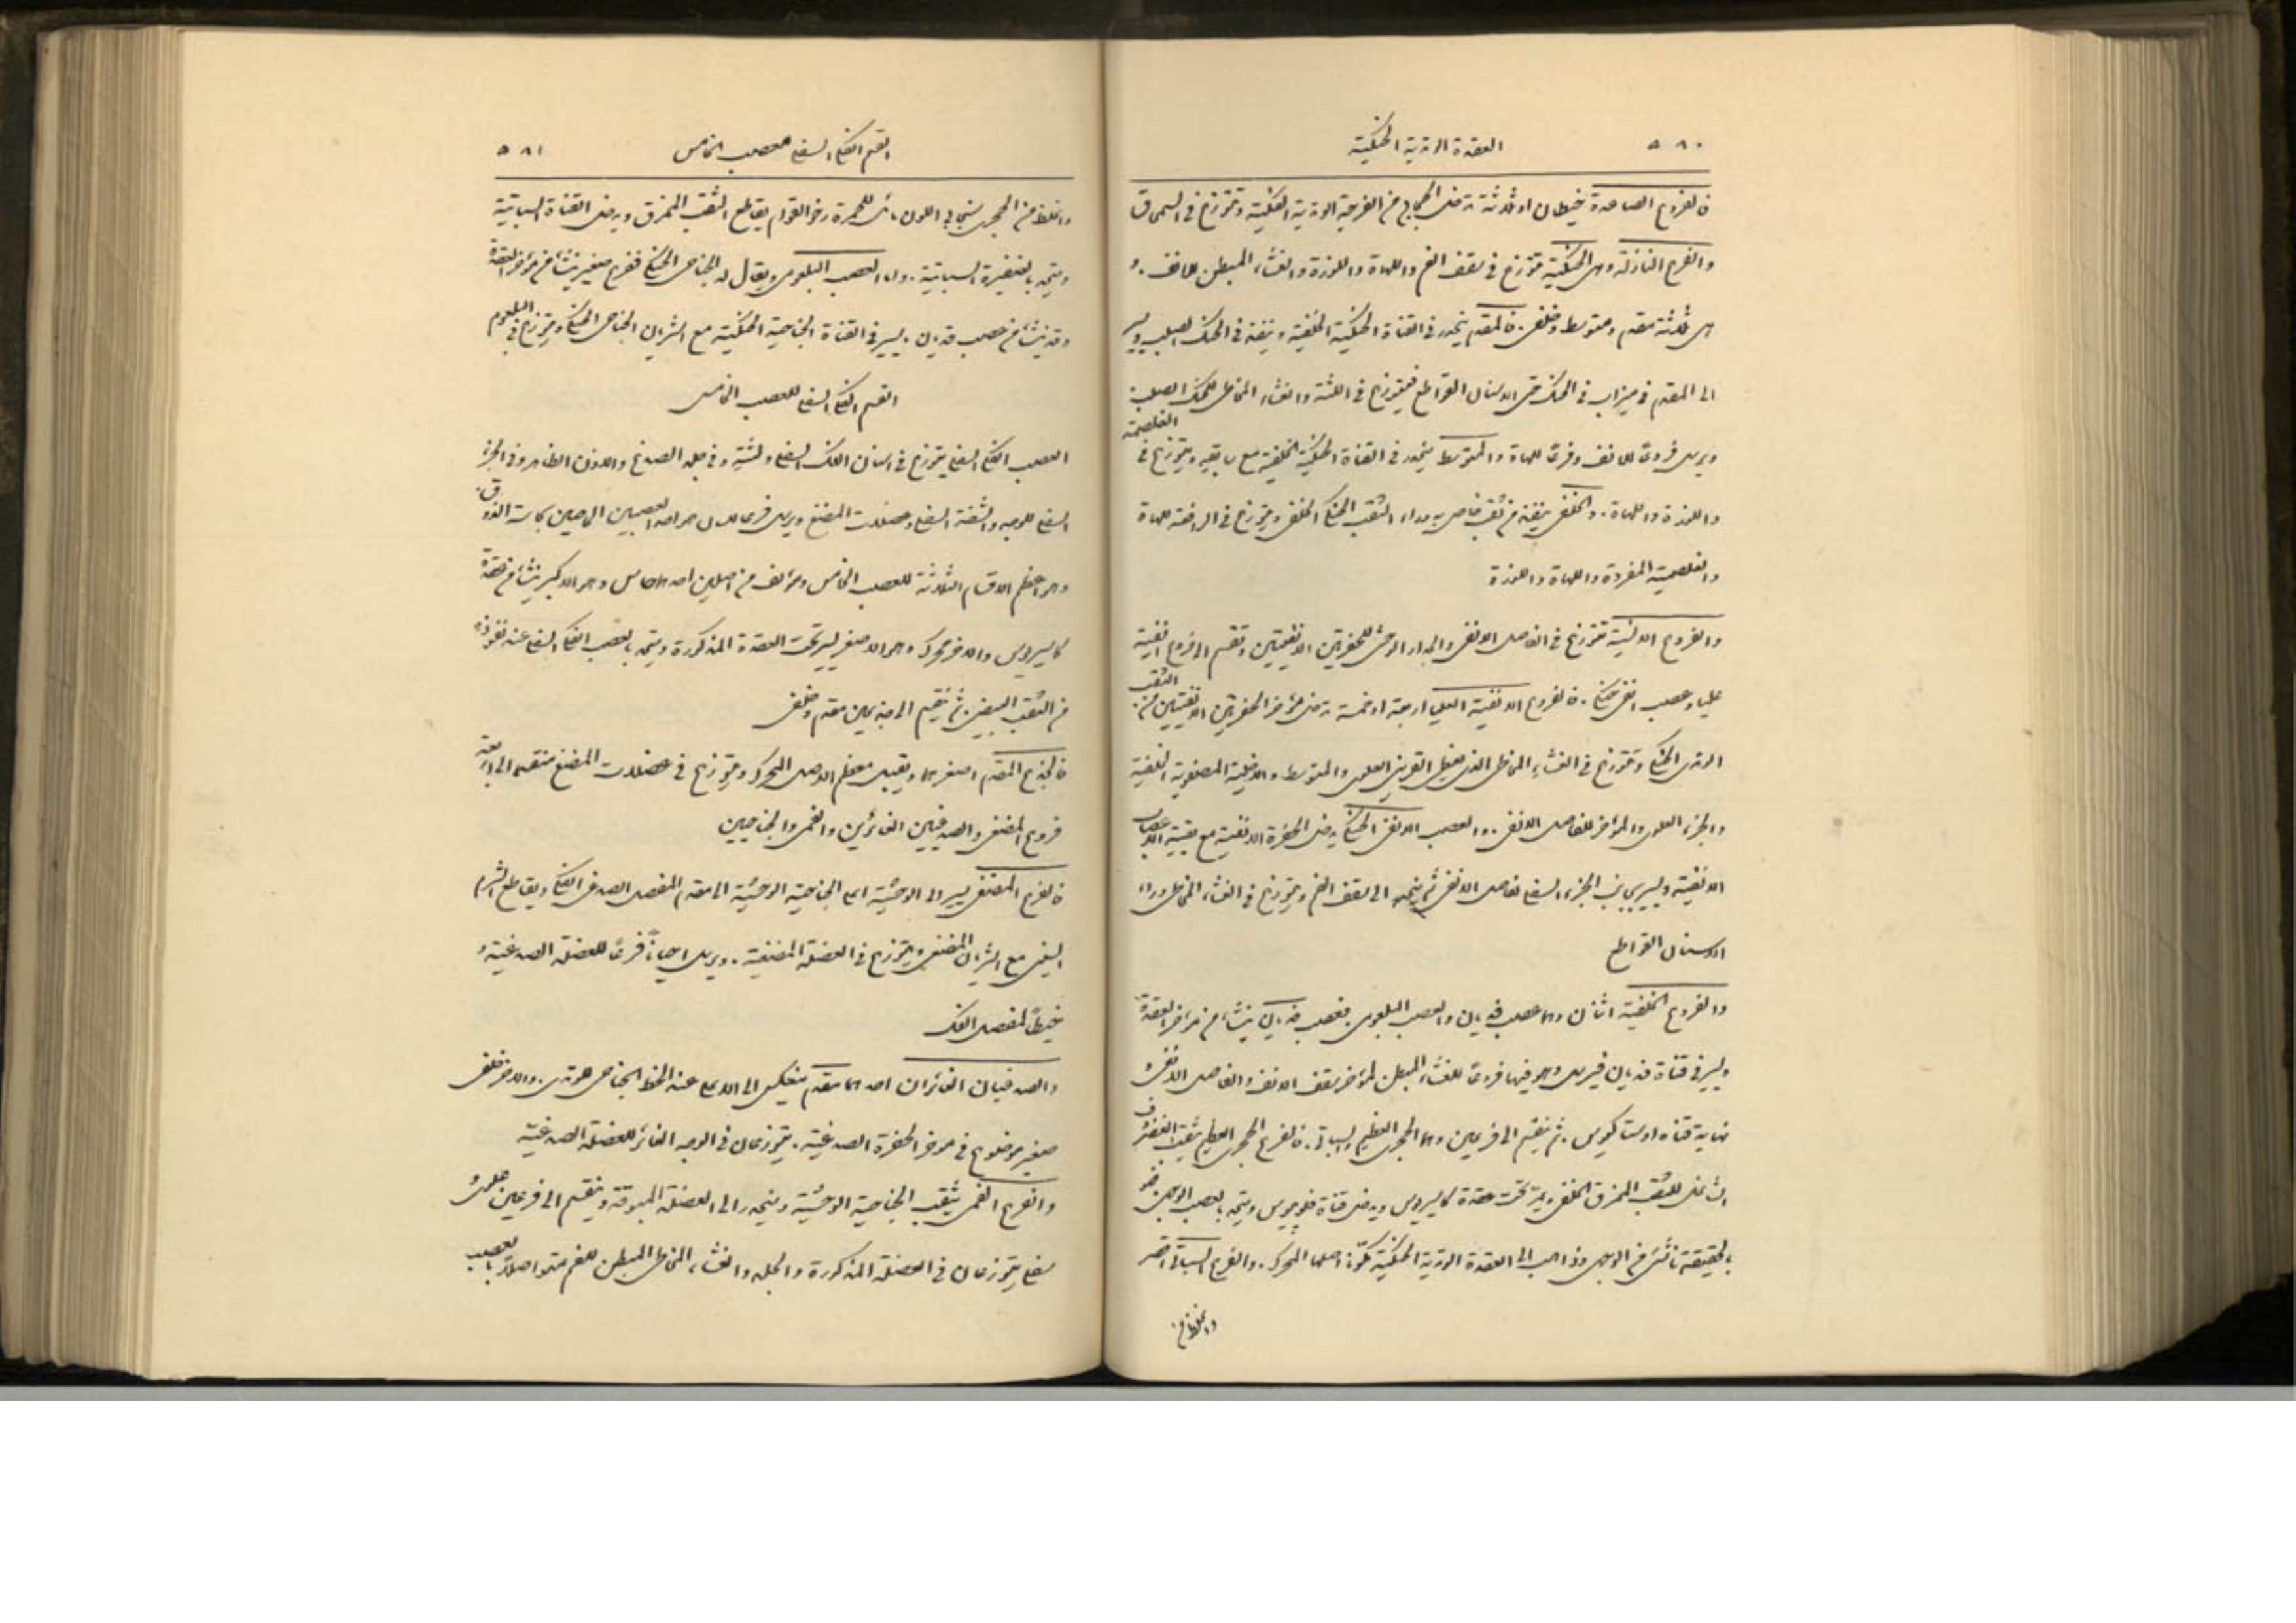 ٥٨٠ العقدة الوتدية الحنكية
فالفروع الصاعدة خيطان او ثلاثة تدخل الحجاج من الفرجة الوتدية الفكية وتتوزع في السمحاق
والفروع النازلة وهي الحنكية تتوزع في سقف الفم واللهاة واللوزة والغشاء المبطن للانف. و
هي ثلاثة مقدم ومتوسط وخلفي. فالمقدم ينحدر في القناة الحنكية الخلفية وينفذ في الحنك الصلب ويسير
الى المقدم في ميزاب في الحنك حتى الاسنان القواطع فيتوزع في اللثة والغشاء المخاطي للحنك الصلب
ويرسل فروعًا للانف وفرعًا للهاة والمتوسط ينحدر في القناة الحنكية الخلفية مع باقيه ويتوزع في الغلصمة
واللوزة واللهاة. والخلفي ينفذ من ثقب خاص به وراء الثقب الحنكي الخلفي ويتوزع في الرافعة للهاة
والغلصمية المفردة واللهاة واللوزة
والفروع الانسية تتوزع في الفاصل الانفي والجدار الوحشي للحفرتين الانفيتين وتقسم الى فروع انفية
عليا وعصب انفي حنكي. فالفروع الانفية العليا اربعة او خمسة تدخل مؤخر الحفرتين الانفيتين من الثقب
الوتدي الحنكي وتتوزع في الغشاء المخاطي الذي يغطي القرين العلوي والمتوسط والاخلية المصفوية الخلفية
والجزء العلوي والمؤخر للفاصل الانفي. والعصب الانفي الحنكي يدخل الحفرة الانفية مع بقية الاعصاب
الانفية ويسير بجانب الجزء السفلي لفاصل الانف ثم ينحدر الى سقف الفم ويتوزع في الغشاء المخاطي وراء
الاسنان القواطع
والفروع الخلفية اثنان وهما عصب فيديان والعصب البلعومي. فعصب فيديان ينشأ من مؤخر العقدة
ويسير في قناة فيديان فيرسل وهو فيها فروعًا للغشاء المبطن لمؤخر سقف الانف والفاصل الانفي و
نهاية قناة اوستاكيوس. ثم ينقسم الى فرعين وهما الحجري العظيم والسباتي. فالفرع الحجري العظيم يثقب الغضروف
الشاغل للثقب الممزق الخلفي ويمر تحت عقدة كاسيريوس ويدخل قناة فلوبيوس ويتحد بالعصب الوجهي. فهو
بالحقيقة ناشئ من الوجهي وذاهب الى العقدة الوتدية الحنكية مكونًا اصلها المحرك. والفرع السباتي اقصر
واغلظ من
القسم الفكي السفلي للعصب الخامس ٥٨١
واغلظ من الحجري سنجابي اللون مائل للحمرة رخو القوام يقاطع الثقب الممزق ويدخل القناة السباتية
ويتحد بالضفيرة السباتية. واما العصب البلعومي ويقال له الجناحي الحنكي ففرع صغير ينشأ من مؤخر العقدة
وقد ينشأ من عصب فيديان. يسير في القناة الجناحية الحنكية مع الشريان الجناحي الحنكي ويتوزع في البلعوم
القسم الفكي السفلي للعصب الخامس
العصب الفكي السفلي يتوزع في اسنان الفك السفلي ولثته وفي جلد الصدغ والاذن الظاهرة وفي الجزء
السفلي للوجه والشفة السفلى وعضلات المضغ ويرسل فرعًا للسان هو احد العصبين الخاصين بحاسة الذوق.
وهو اعظم الاقسام الثلاثة للعصب الخامس ومؤلف من اصلين احدهما حاس وهو الاكبر ينشأ من عقدة
كاسيريوس والآخر محرك وهو الاصغر يسير تحت العقدة المذكورة ويتحد بالعصب الفكي السفلي عند نفوذه
من الثقب البيضي. ثم ينقسم الى جذعين مقدم وخلفي
فالجذع المقدم اصغرهما ويقبل معظم الاصل المحرك ويتوزع في عضلات المضغ منقسمًا الى اربعة
فروع المضغي والصدغيين الغائرين والفمي والجناحيين
فالفرع المضغي يسير الى الوحشية اعلى الجناحية الوحشية الى مقدم المفصل الصدغي الفكي ويقاطع الشرم
السيني مع الشريان المضغي ويتوزع في العضلة المضغية. ويرسل احيانًا فرعًا للعضلة الصدغية و
خيطًا لمفصل الفك
والصدغيان الغائران احدهما مقدم ينعكس الى الاعلى عند الخط الجناحي الوتدي. والآخر خلفي
صغير موضوع في مؤخر الحفرة الصدغية. يتوزعان في الوجه الغائر للعضلة الصدغية
والفرع الفمي يثقب الجناحية الوحشية وينحدر الى العضلة المبوقة وينقسم الى فرعين علوي و
سفلي يتوزعان في العضلة المذكورة والجلد والغشاء المخاطي المبطن للفم متواصلًا بالعصب